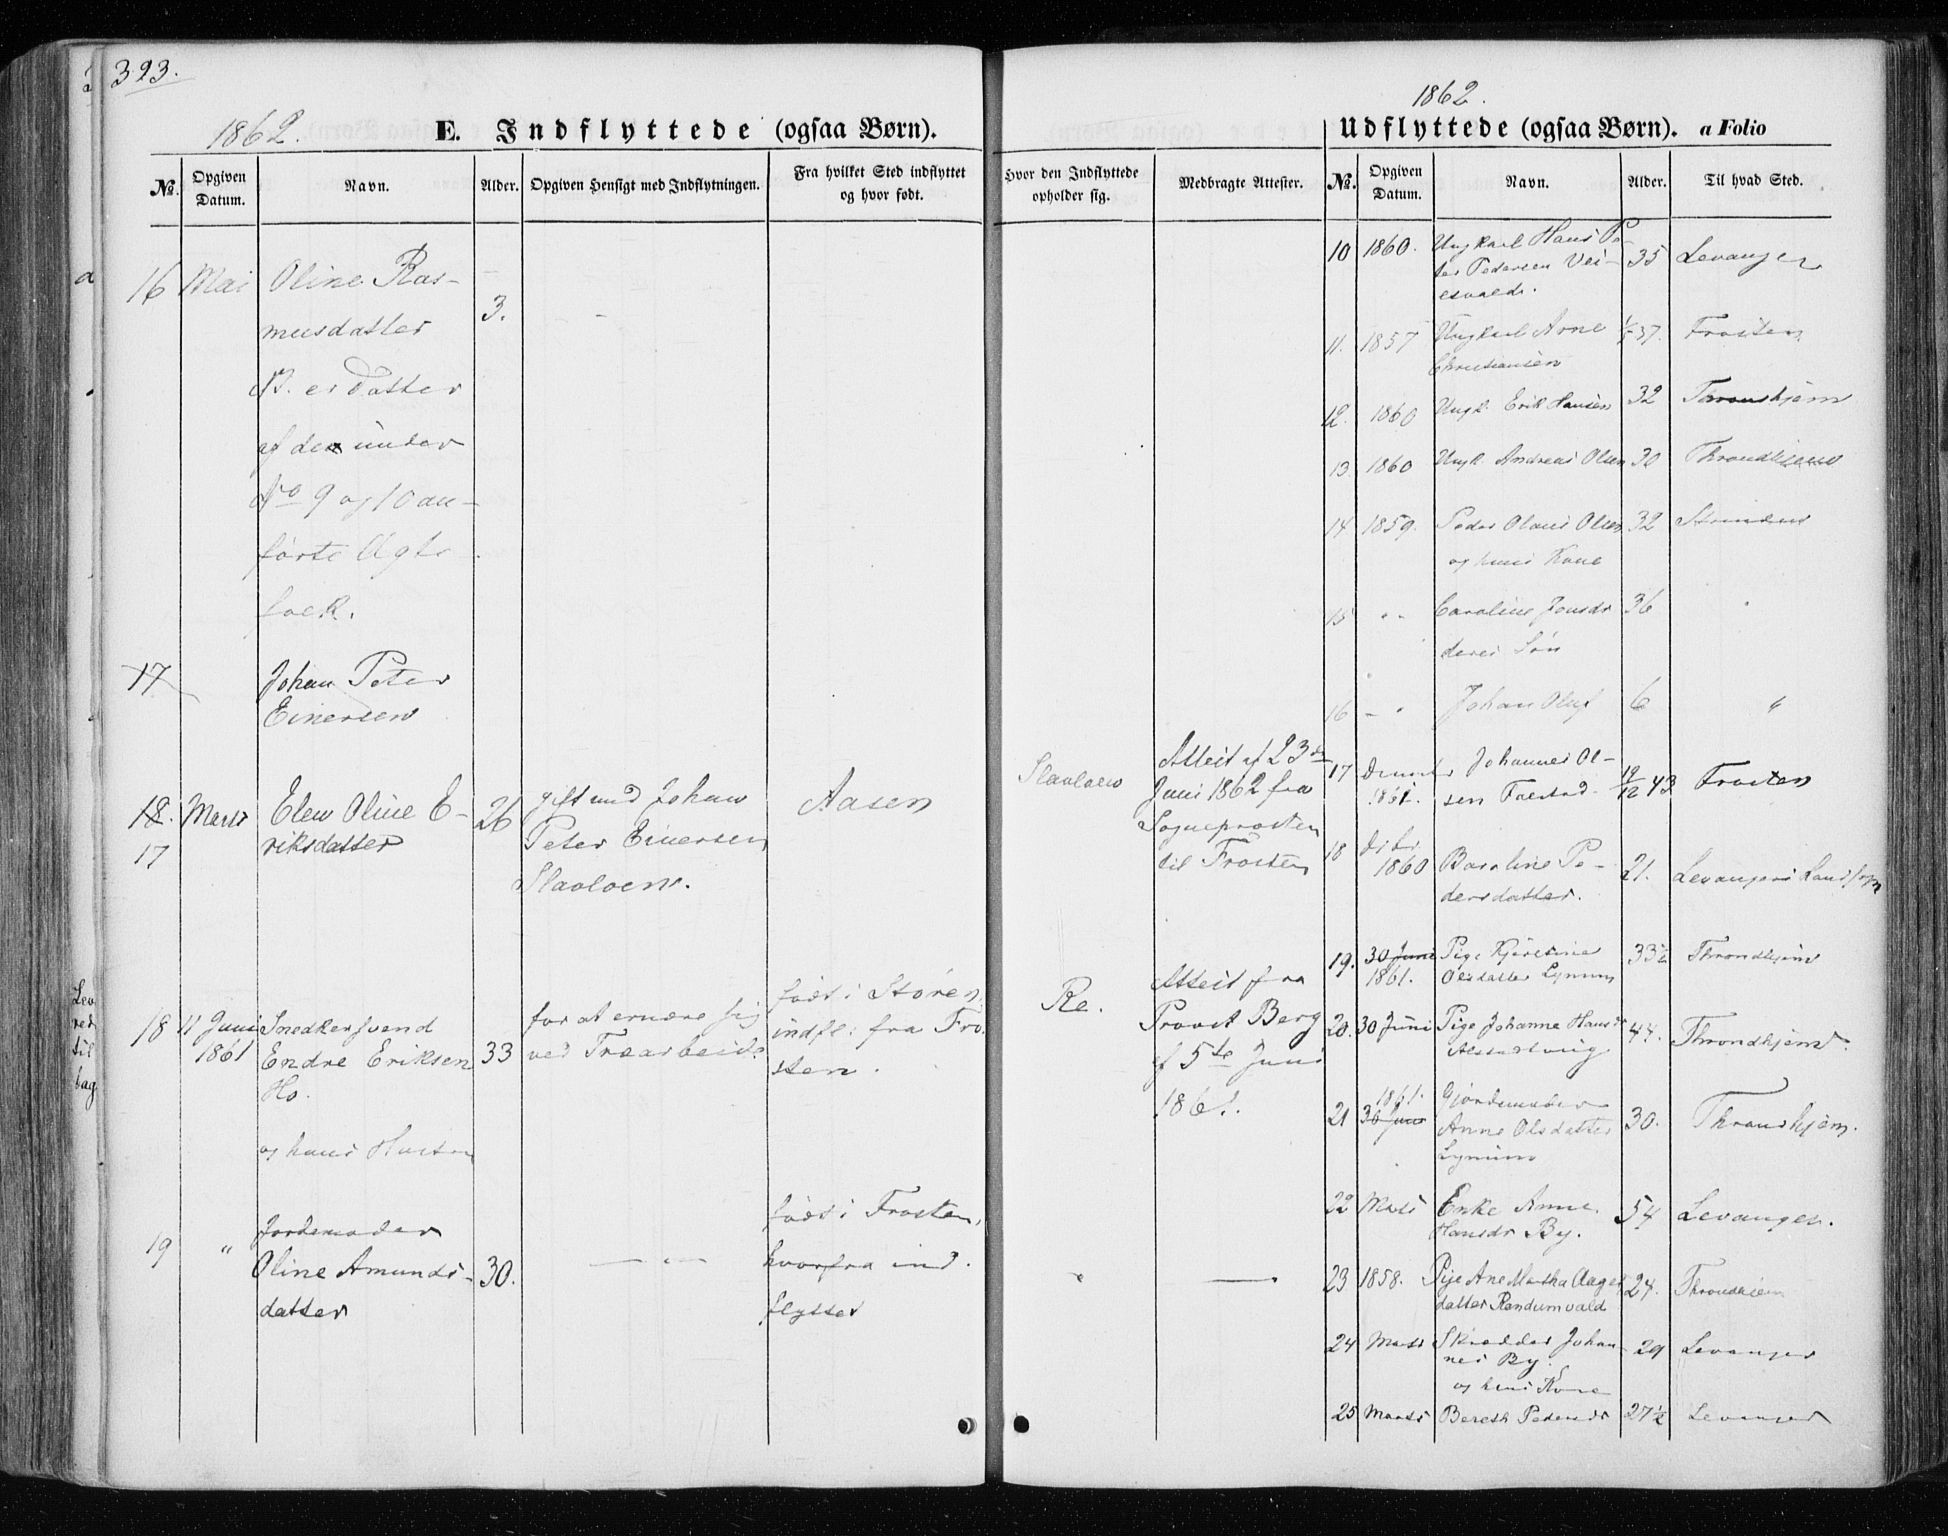 323.
1862.
E. Indflyttede (ogsaa Børn).
№.
Opgiven
Datum.
Navn.
Alder.
Opgiven Hensigt med Indflytningen.
Fra hvilket Sted indflyttet
og hvor født.
16 Mai Oline Ras-
musdatter 3.
N. er Datter
af de under
No 9 og 10 an-
førte Ægte-
folk.
17 Johan Peter
Einersen
18. Marts Elen Oline E- 26 gift med Johan Aasen
17 riksdatter Peter Einersen
18 11 Juni Snedkersvend for at ernære sig født i Støren,
1861 Endre Eriksen 33 ved Træarbeide indfl: fra Fro-
Ho. sten.
og hans Hustru
19 " Jordemoder født i Frosten,
Oline Amunds- 30. hvorfra ind-
datter flyttet
Hvor den Indflyttede
opholder sig.
Medbragte Attester.
Attest af 23de
Juni 1862 fra
Sogneprosten
til Frosten
Re.
Attest fra
Provst Berg
af 5te Juni
1861.
1862.
Udflyttede (ogsaa Børn). a Folio
№.
Opgiven
Datum.
Navn.
Alder.
Til hvad Sted.
10 1860. Ungkarl Hans Pe- 35 Levanger
ter Pedersen Vei-
11. 1857 Ungkarl Arne 37. Frosten
Christiansen
12. 1860 Ungk. Erik Hansen 32 Thronhjem
13. 1860 Ungk. Andreas Olsen 30 Throndhjem
14 1859. Peder Olaus Olsen 32 Strinden
og hans Kone
15 " " Caroline Jonsdr 36 "
deres Søn
16 - " Johan Oluf 6 "
17 Johannes Ol- 19/12 43 Frosten
1861. sen Falstad
18
1860 Baroline Pe- 21. Levangers Landsogn
dersdatter.
19. 30 Juni Pige Kjerstina 33½ Throndhjem
1861. Olsdatter Lynum
20. 30 Juni Pige Johanne Hansdr 44. Throndhjem.
1861. Gjordemoder
21 30 Juni Anne Olsdatter 30. Thronhjem.
Lynum
22 Marts Enke Anne 54 Levanger.
Hansdr By.
23 1858. Pige Ane Martha Aages 24. Throndhjem
datter Randumvald
24 Marts Skrædder Johan- 29 Levanger
nes By.
og hans Kone
25 Marts Bereth Pedersdr 27½ Levanger